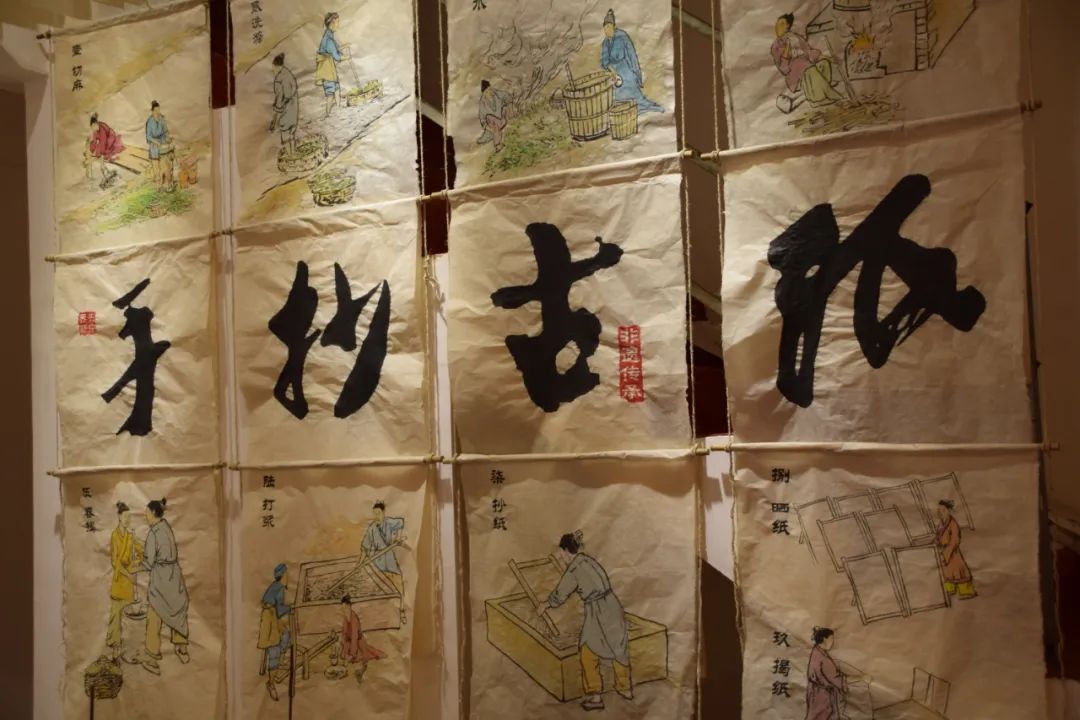 壹 切麻
贰 洗涤
手抄古纸
非遗传承
伍 舂捣
陆 打浆
柒 抄纸
捌 晒纸
玖 揭纸